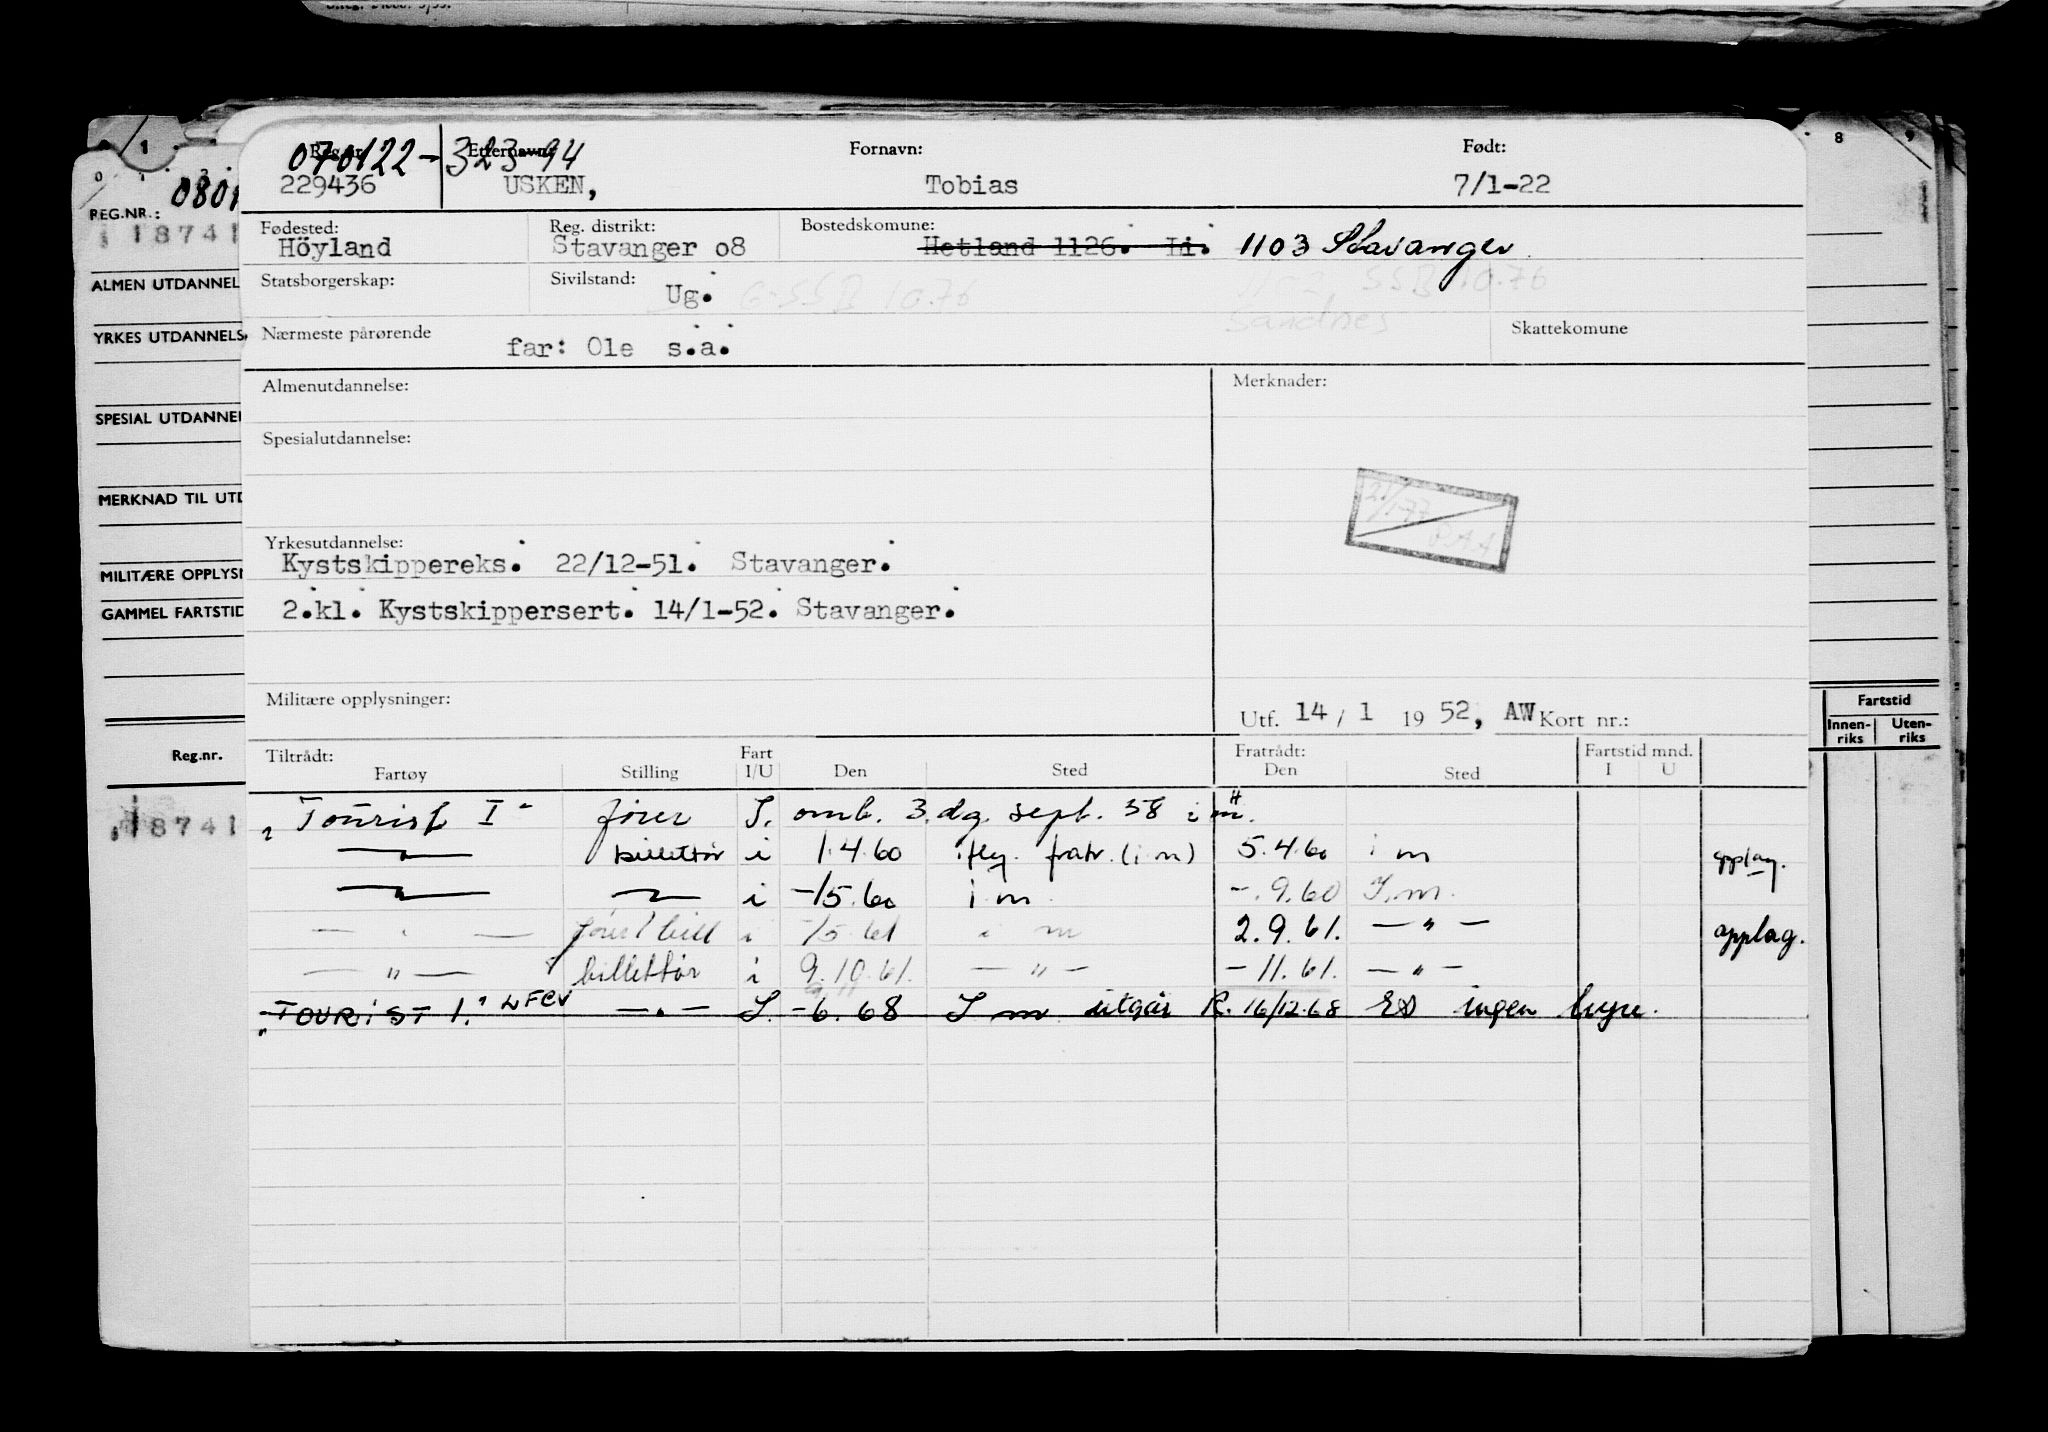 070122-32394
Reg.nr. Etternavn: Fornavn: Født:
229436 USKEN, Tobias 7/1-22
Fødested: Reg. distrikt: Bostedskomune:
Höyland Stavanger o8 Hetland 1126. Ii. 1103 Stavanger
Statsborgerskap: Sivilstand: Ug. G-SSB 10.76 SSB 10.76
Sandnes
Nærmeste pårørende Skattekomune
far: Ole s.a.
Almenutdannelse: Merknader:
Spesialutdannelse:
Yrkesutdannelse:
Kystskippereks. 22/12-51. Stavanger.
2.kl. Kystskippersert. 14/1-52. Stavanger.
Militære opplysninger:
Utf. 14/1 1952, AW Kort nr.:
Tiltrådt: Fart Fratrådt: Fartstid mnd.
Fartøy Stilling I/U Den Sted Den Sted I U
"Tourist I" fører I. omb. 3. dg. sept. 58 i m.
—"— billettør i 1.4.60 fratr. (i m) 5.4.60 i m opplag.
—"— —"— i -/5.60 i m -.9.60 I.m.
—"— i -/5.61 i m 2.9.61. —"— opplag.
—"— billettør i 9.10.61. —"— -11.61. —"—
"TOURIST I." LFCV —"— I. -6.68 I m utgår R. 16/12.68 ingen hyre.
0 1 2
080
REG.NR.:
18741
ALMEN UTDANNEL
YRKES UTDANNELS
SPESIAL UTDANNE
MERKNAD TIL UTD
MILITÆRE OPPLYSN
GAMMEL FARTSTID
Reg.nr.
18741
8 9
Fartstid
Innen-riks Uten-riks